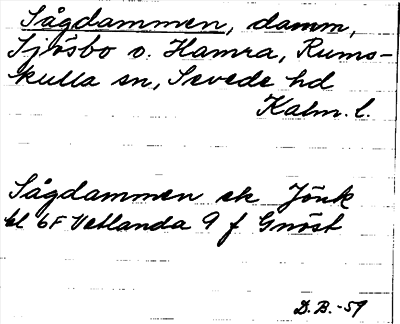 Sågdammen, damm,
Sjösbo o. Hamra, Rums-
kulla sn, Sevede hd
Kalm. l.
Sågdammen ek Jönk
bl 6F Vetlanda 9 f Gnöst
D.B.-59